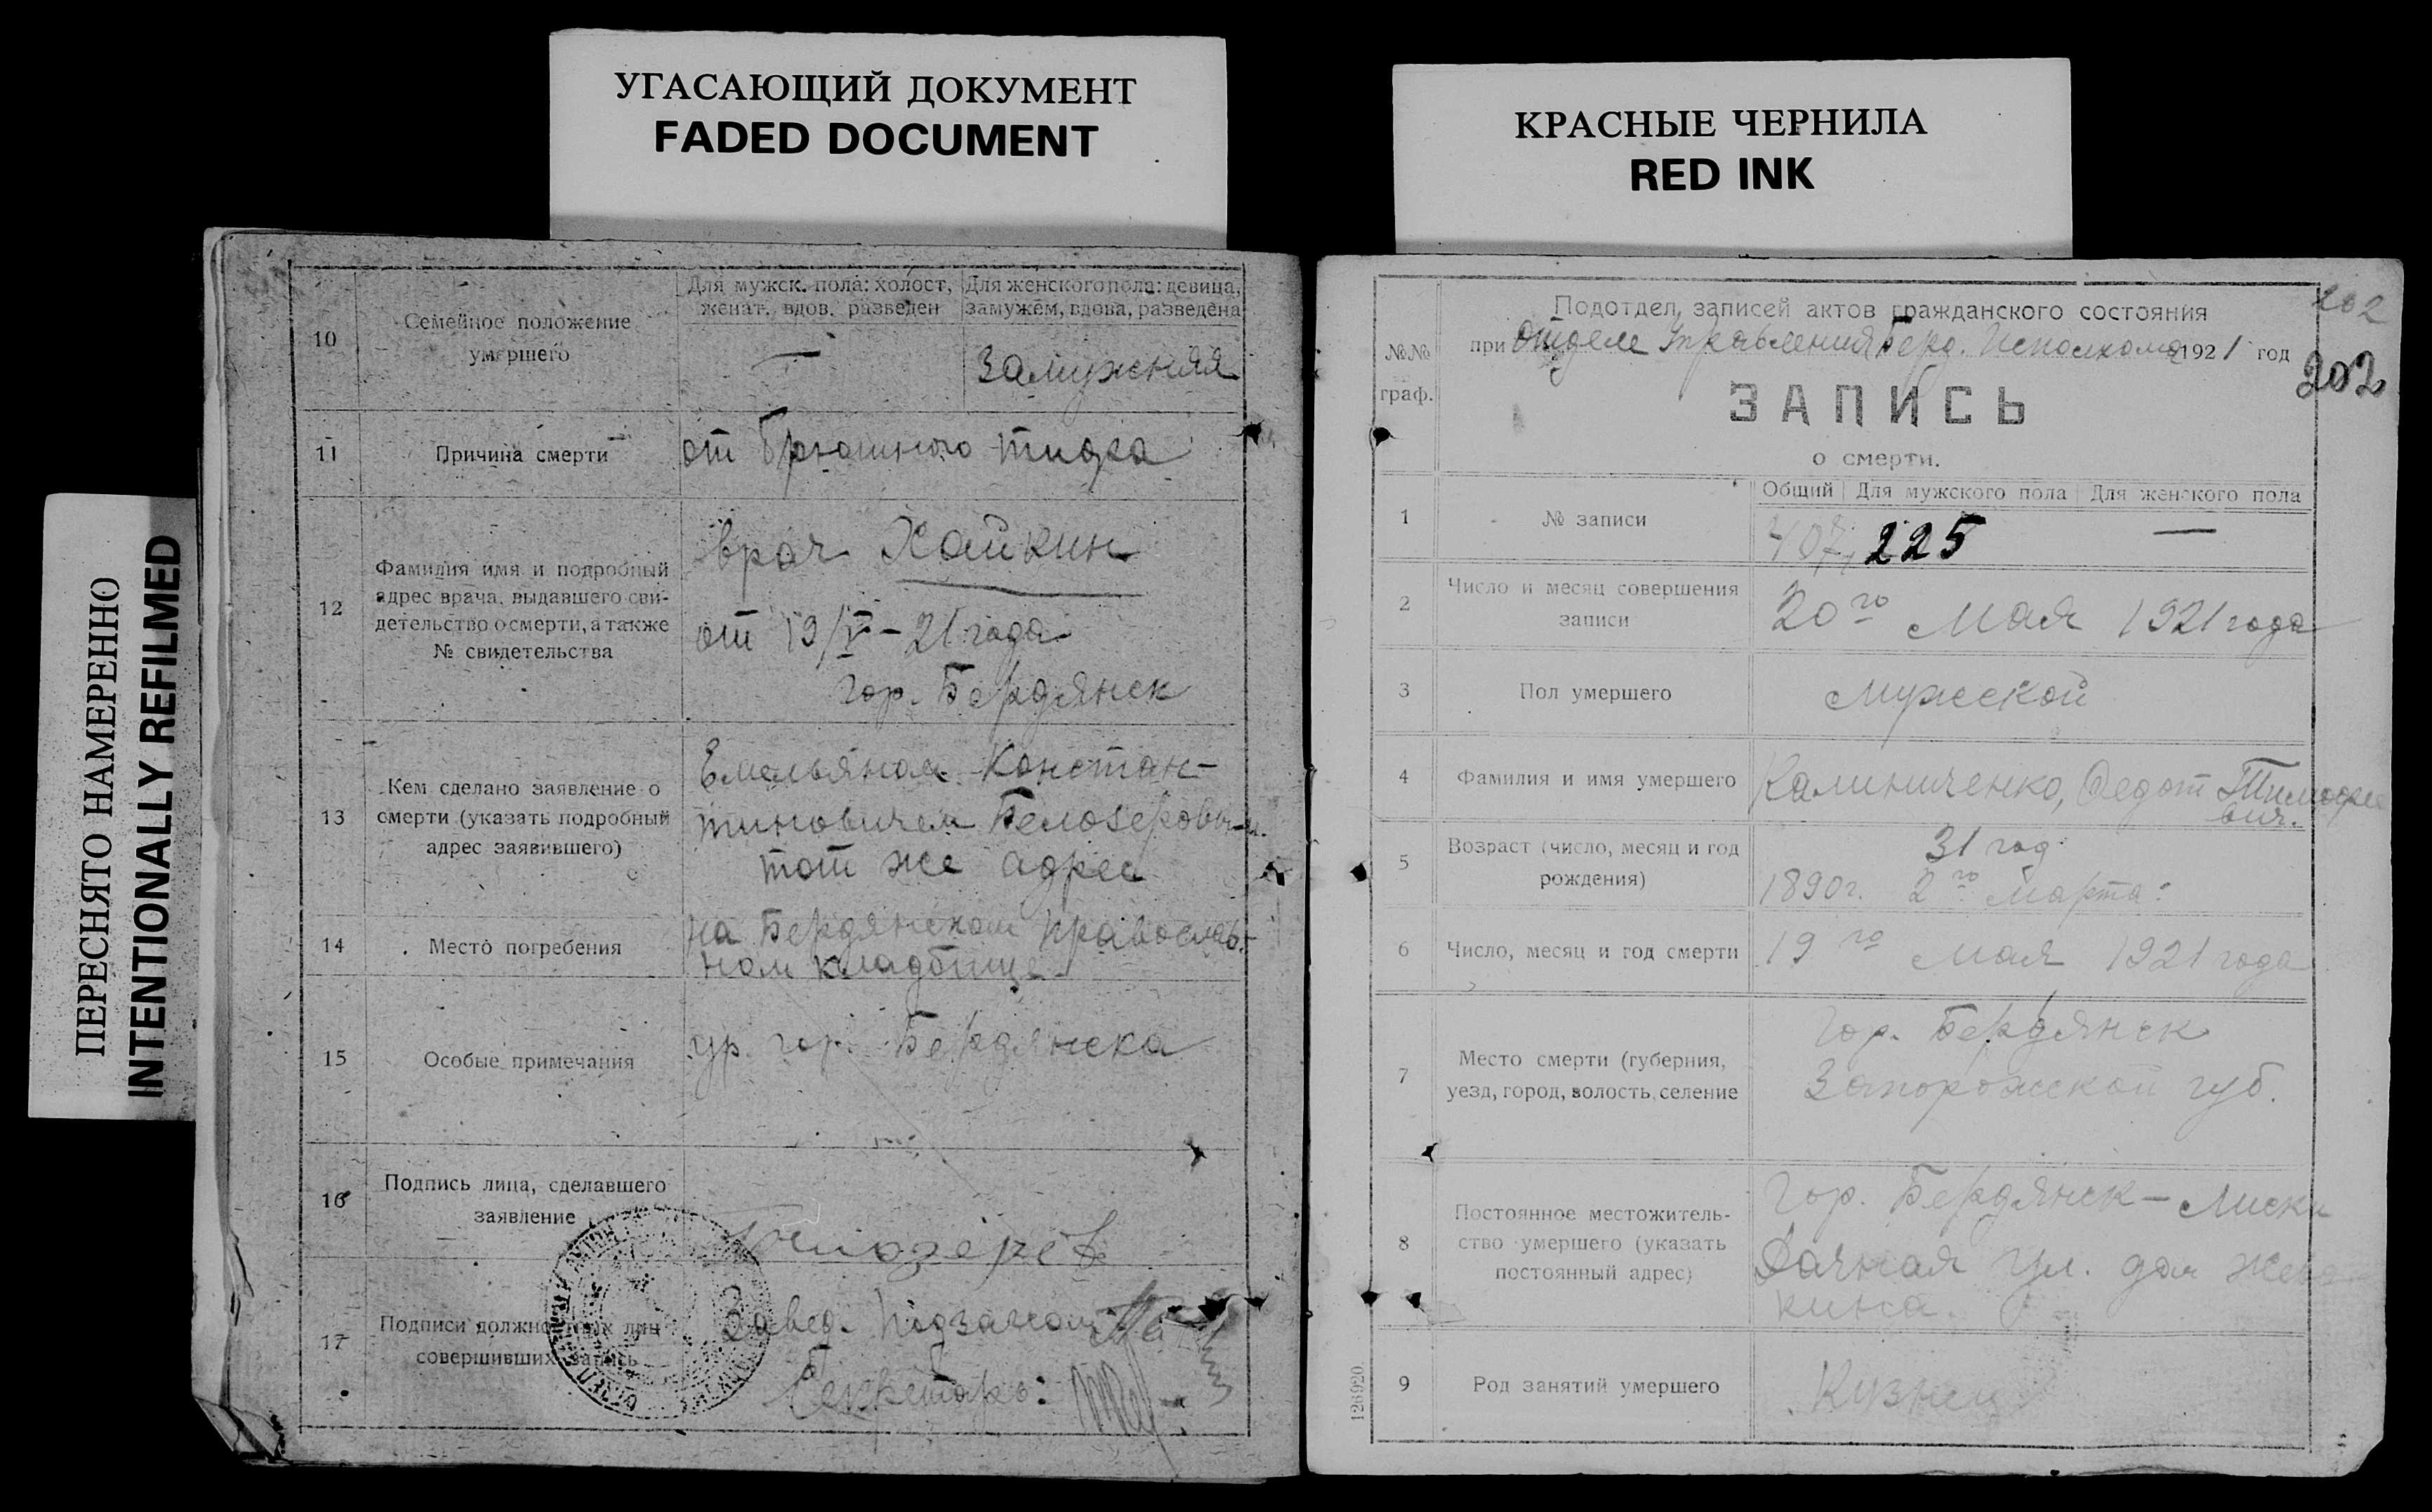 УГАСАЮЩИЙ ДОКУМЕНТ
FADED DOCUMENT
КРАСНЫЕ ЧЕРНИЛА
RED INK
ПЕРЕСНЯТО НАМЕРЕННО
INTENTIONALLY REFILMED
10
Семейное положение
умершего
Для мужск. пола: холост,
женат, вдов, разведен
—
Для женского пола: девица,
замужем, вдова, разведена
Замужняя
11
Причина смерти
от брюшного тифа
12
Фамилия имя и подробный
адрес врача, выдавшего сви-
детельство о смерти, а также
№ свидетельства
врач Хайкин
от 19/V – 21 года
гор. Бердянск
13
Кем сделано заявление о
смерти (указать подробный
адрес заявившего)
Емельяном Констан-
тиновичем Белозеровым
тот же адрес
14
Место погребения
на Бердянском православ-
ном кладбище
15
Особые примечания
ур. гор. Бердянска
16
Подпись лица, сделавшего
заявление
Белозеров
17
Подписи должностных лиц
совершивших запись
Завед. Подзагсом
Секретарь:
202
202
№№
граф.
Подотдел записей актов гражданского состояния
при Отделе Управления Берд. Исполкома 1921 год
ЗАПИСЬ
о смерти.
1
№ записи
Общий
Для мужского пола
Для женского пола
407
225
—
2
Число и месяц совершения
записи
20го Мая 1921 года
3
Пол умершего
мужской
4
Фамилия и имя умершего
Калиниченко, Федот Тимофее
вич.
5
Возраст (число, месяц и год
рождения)
31 год
1890г. 2го Марта
6
Число, месяц и год смерти
19го Мая 1921 года
7
Место смерти (губерния,
уезд, город, волость, селение
Гор. Бердянск
Запорожской губ.
8
Постоянное местожитель-
ство умершего (указать
постоянный адрес)
Гор. Бердянск – Лиски
Дачная ул. дом
кина.
9
Род занятий умершего
Кузнец
126920